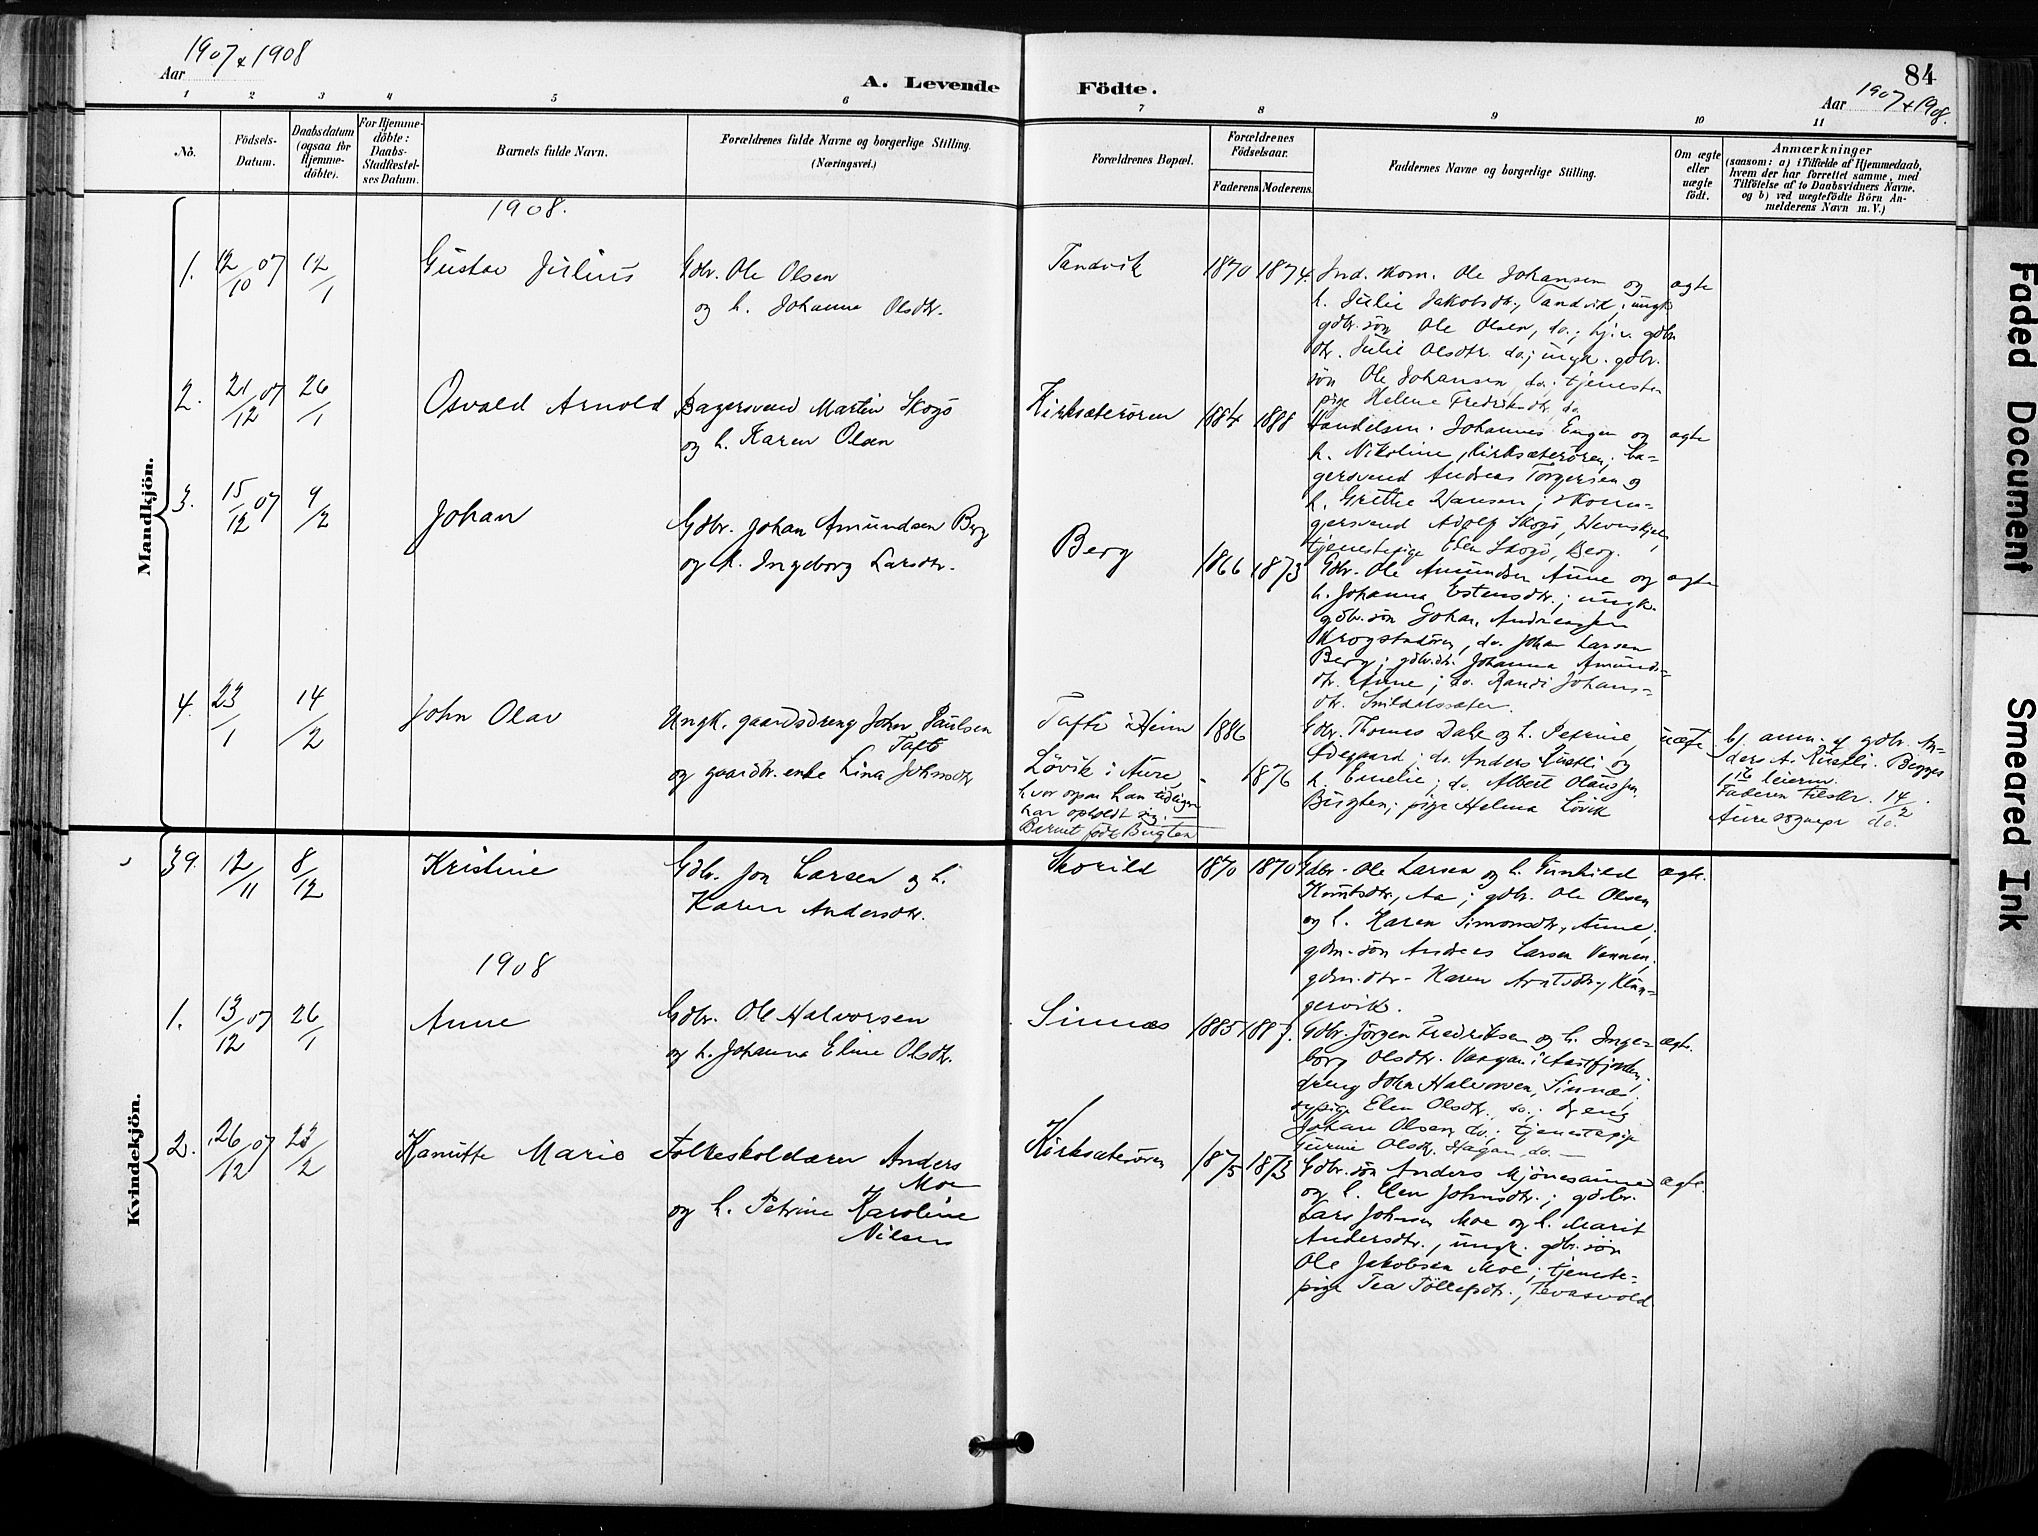 Aar 1907 & 1908
A. Levende Födte.
84
Aar 1907 & 1908.
1 2 3 4 5 6 7 8 9 10 11
No.
Födsels-Datum.
Daabsdatum (ogsaa for Hjemme-döbte).
For Hjemme-döbte: Daabs-Stadfæstel-ses Datum.
Barnets fulde Navn.
Forældrenes fulde Navne og borgerlige Stilling. (Næringsvei.)
Forældrenes Bopæl.
Forældrenes Födselsaar.
Faderens. Moderens.
Faddernes Navne og borgerlige Stilling.
Om ægte eller uægte födt.
Anmærkninger
(saasom: a) i Tilfælde af Hjemmedaab, hvem der har forrettet samme, med Tilföielse af to Daabsvidners Navne, og b) ved uægtefödte Börn An-melderens Navn m. V.)
Mandkjön.
1908.
1. 12/10 07 12/1 Gustav Julius
Gdbr. Ole Olsen
og h. Johanna Olsdtr.
Tandvik 1870 1874.
Ind. skom. Ole Johansen og
h. Julie Jakobsdtr., Tandvik; ungk.
gdbr. søn Ole Olsen, do.; gdbr.
dtr. Julie Olsdtr. do; ungk. gdbr.
søn Ole Johansen, do.; tjeneste
pige Helene Fredriksdtr. do
ægte
2. 21/12 07 26/1 Osvald Arnold
Bagersvend Martin Skogö
og h. Karen Olsen
Kirksæterören 1884 1888
Handelsm. Johannes Engen og
h. Nikoline, Kirksæterören; ba-
gersvend Andreas Torgersen og
h. Grethe Hansen; skoma-
gersvend Adolf Skogö,
tjenestepige Elen Skogö, Berg.
ægte
3. 15/12 07 9/2 Johan
Gdbr. Johan Amundsen Berg
og h. Ingeborg Larsdtr.
Berg 1866 1873
Gdbr. Ole Amundsen Aune og
h. Johanna Estensdtr.; ungk.
gdbr. søn Johan Andreassen
Krogstadören, do. Johan Larsen
Berg; gdbr.dtr. Johanna Amunds-
dtr. Aune; do. Randi Johans-
dtr. Snildalssæter.
ægte
4. 23/1 14/2 John Olav
Ungk. gaardsdreng John Paulsen
Tafte
og gaardbr. enke Lina Johnsdtr
Tafte i Heim 1886
Lövik i Aure, 1876
hvor ogsaa han tidligere
har opholdt sig.
Barnet födt Bugten
Gdbr. Thomas Dale og h. Petrine,
Ødegaard; do. Anders Rustli og
h. Emelie; do. Albert Olaussen,
Bugten; pige Helena Lövik
uægte
bf. anm. af gdbr. An-
ders A. Rustli. Begges
1ste leierm.
Faderen tilskr. 14/2.
Aure sognepr do.
Kvindekjön.
39. 12/11 8/12 Kristine
Gdbr. Jon Larsen og h.
Karen Andersdtr.
Skorild 1870 1870
Gdbr. Ole Larsen og h. Gunhild
Knutsdtr., Aa; gdbr. Ole Olsen
og h. Karen Simonsdtr., Aune;
gdm. søn Andreas Larsen
gdm. dtr. Karen Arntsdtr., Klun-
gervik.
ægte.
1908
1. 13/12 07 26/1 Anne
Gdbr. Ole Halvorsen
og h. Johanna Eline Olsdtr.
Sinnæs 1885 1887.
Gdbr. Jörgen Fredriksen og h. Inge-
borg Olsdtr. Vaagan i Aastfjorden;
dreng John Halvorsen, Sinnæs;
pige Elen Olsdtr. do.; dreng
Johan Olsen do.; tjenestepige
Gurine Olsdtr. Hagan, do.
ægte.
2. 26/12 07 23/2 Kanutte Marie
Folkeskolelærer Anders
Moe
og h. Petrine Karoline
Nilsen
Kirksæterören 1875 1873
Gdbr. søn Anders Mjönesaune
og h. Elen Johnsdtr.; gdbr.
Lars Johnsen Moe og h. Marit
Andersdtr., ungk. gdbr. søn
Ole Jakobsen Moe; tjeneste-
pige Tea Tollefsdtr., Tevasvold
ægte.
Faded Document
Smeared Ink